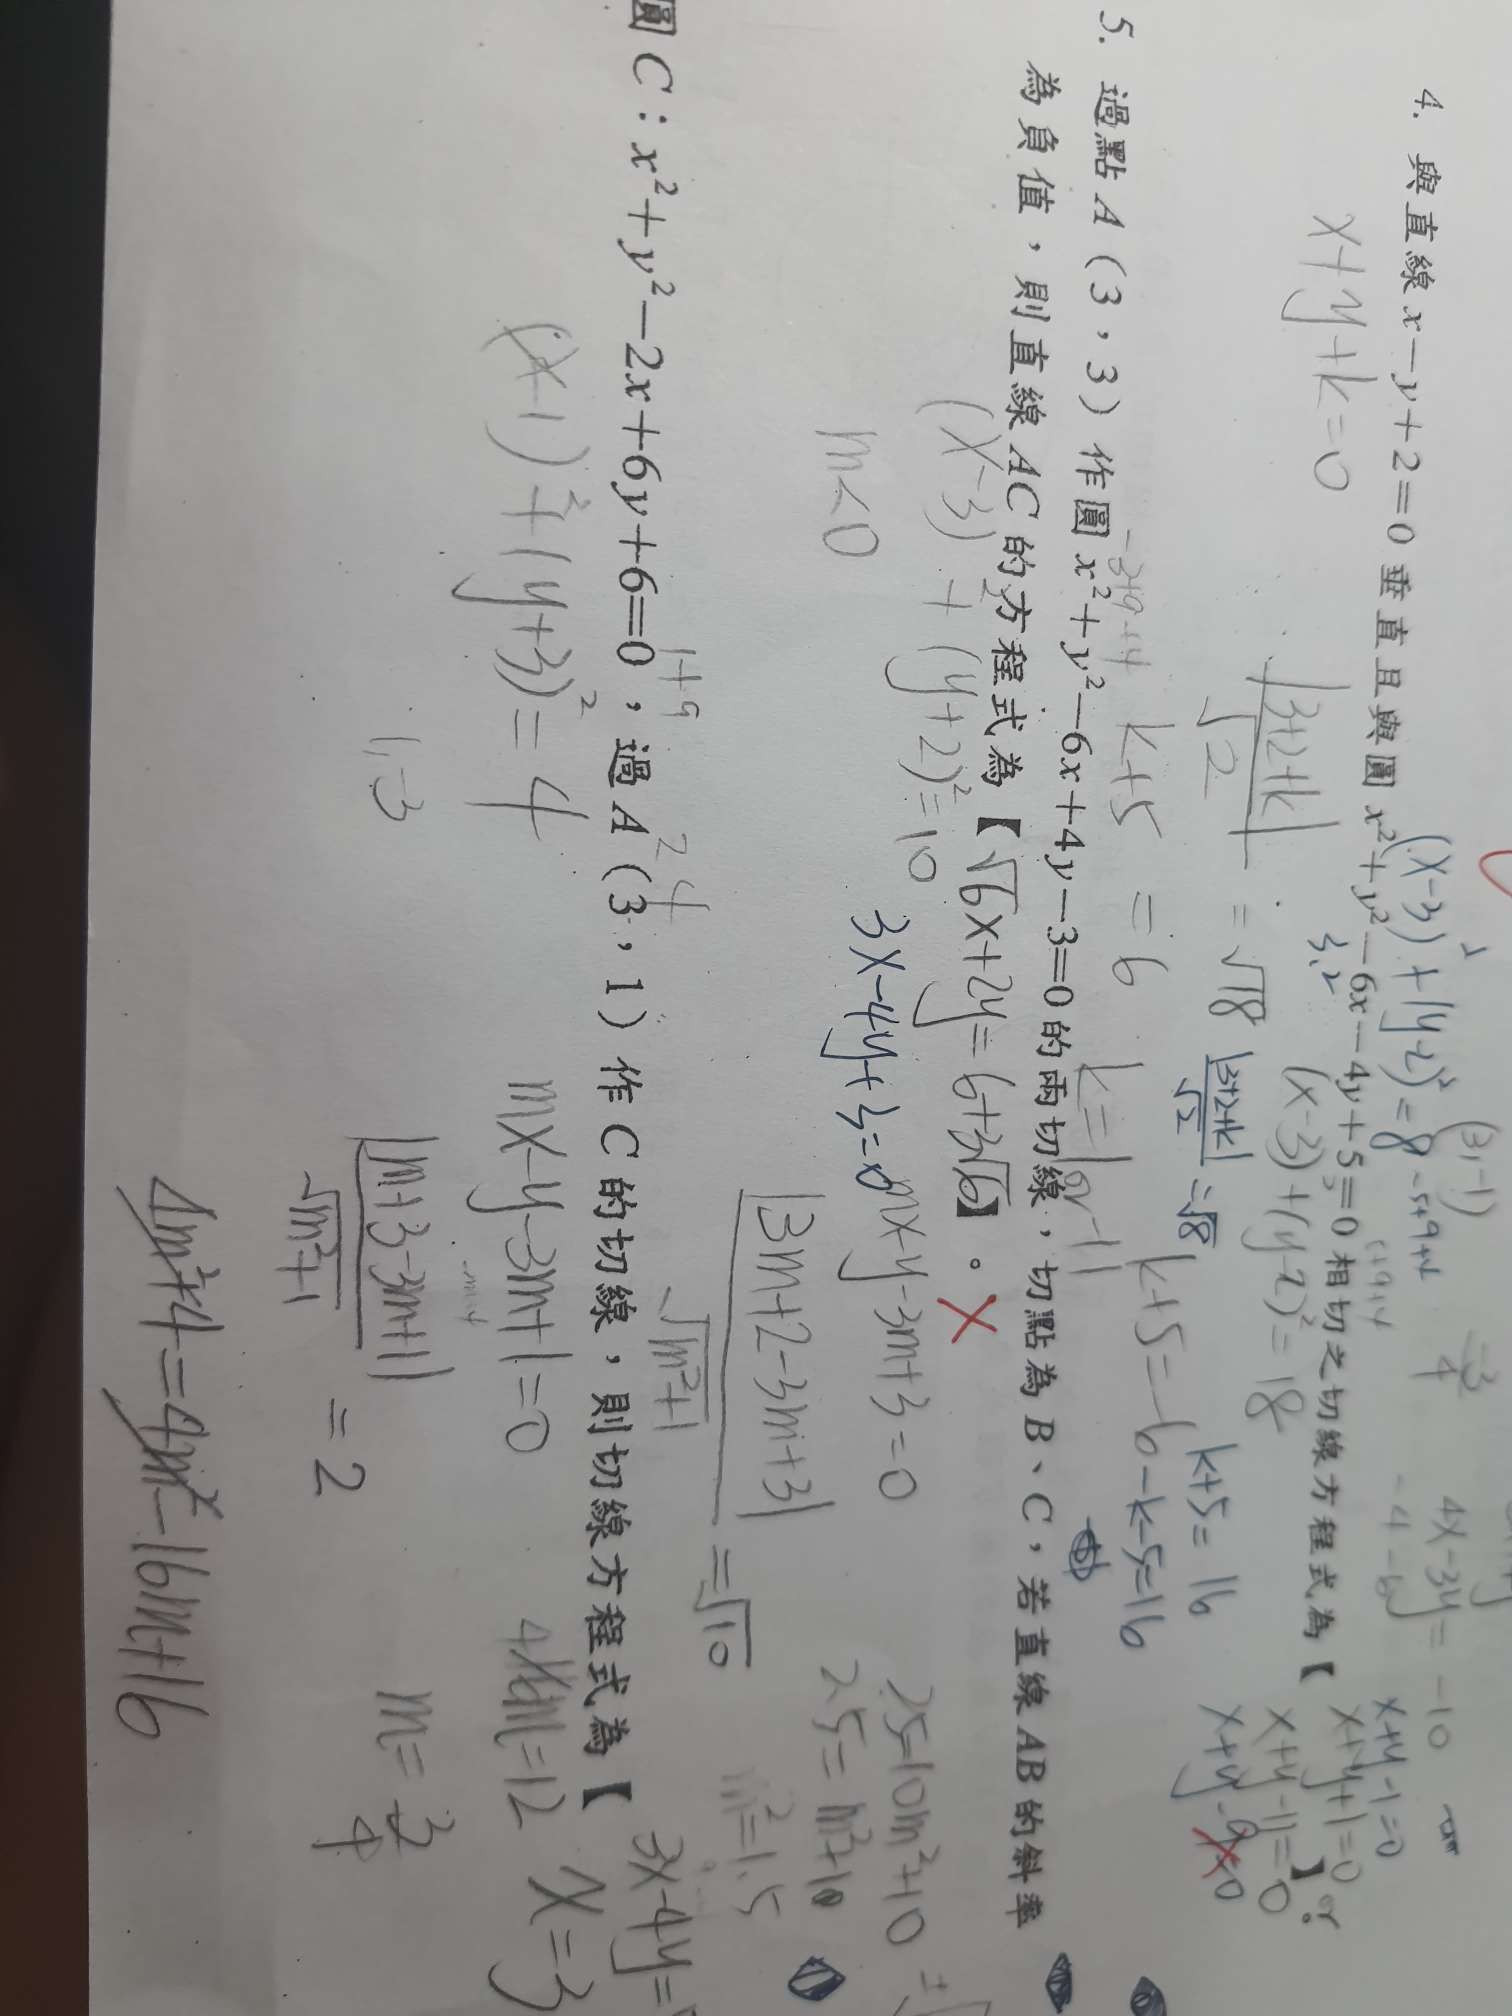 (x-3)²+(y-2)²=8
(3,-1)
-5+9+4
4x-3y=-10
4. 與直線 x-y+2=0 垂直且與圓 x²+y²-6x-4y+5=0 相切之切線方程式為【
x+y-1=0
x+y+1=0
x+y-11=0
x+y-9=0
】。
or
3,2
x+y+k=0
(x-3)²+(y-2)²=18
|3+2+k|/√2 = √18
|3+2+k|/√2 = √8
k+5=16
k+5=6
k+5=-6
-k-5=16
5. 過點 A(3,3)作圓 x²+y²-6x+4y-3=0 的兩切線,切點為 B、C,若直線 AB 的斜率
為負值,則直線 AC 的方程式為【√6x+2y=6+3√6】。
(x-3)²+(y+2)²=10
3x-4y+3=0
mx-y-3m+3=0
25=10m²+10
m<0
|3m+2-3m+3|/√m²+1 = √10
25=m²+10
m²=1.5
1+9
2 4
圓 C:x²+y²-2x+6y+6=0,過 A(3,1)作 C 的切線,則切線方程式為【
3x-4y=
x=3
(x-1)²+(y+3)²=4
mx-y-3m+1=0
1,-3
|m+3-3m+1|/√m²+1 = 2
m=3/4
4m²+4=4m²-16m+16